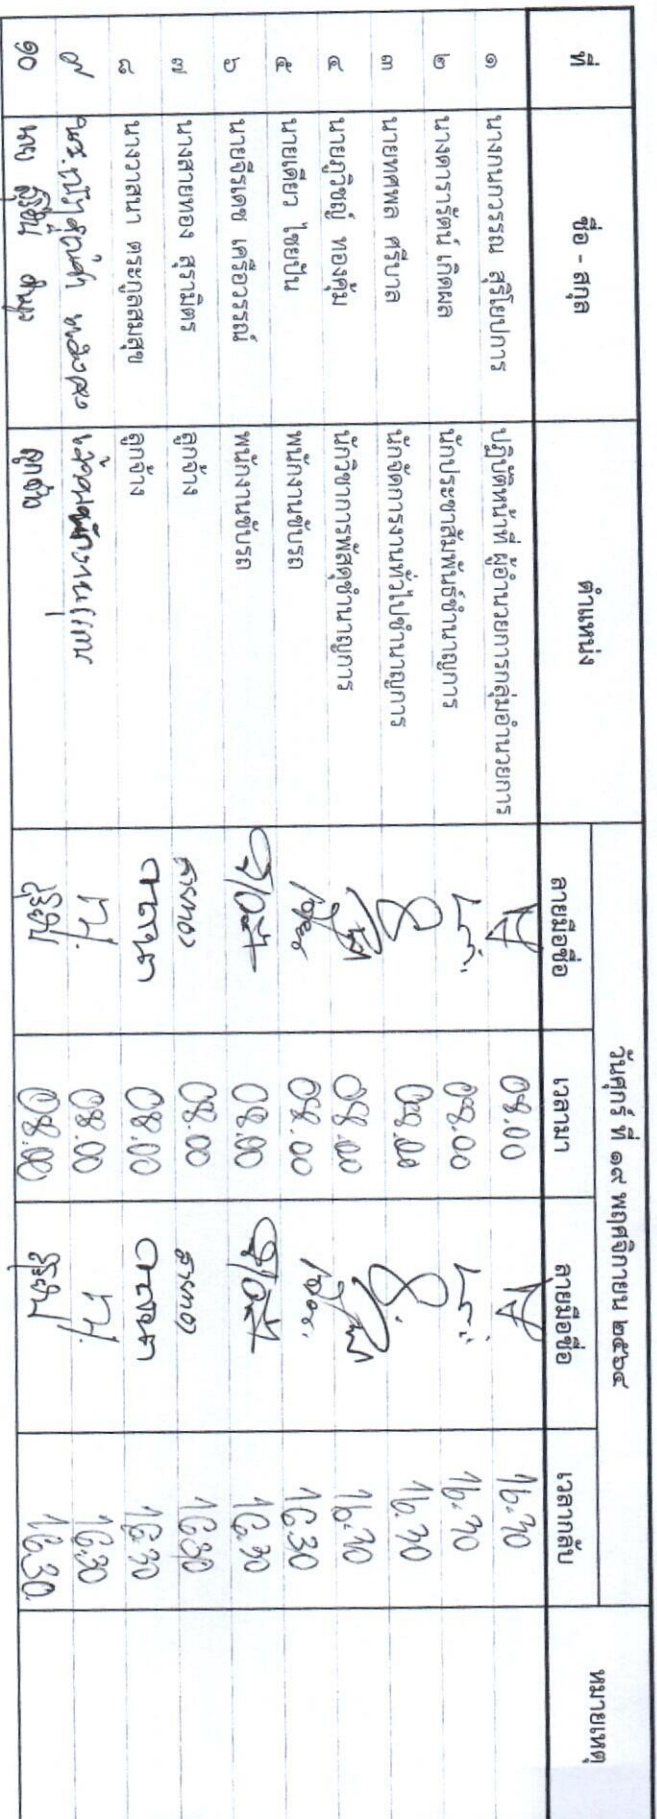 ที่ ชื่อ - สกุล ตำแหน่ง วันศุกร์ ที่ ๑๙ พฤศจิกายน ๒๕๖๔ หมายเหตุ
ลายมือชื่อ เวลามา ลายมือชื่อ เวลากลับ
๑ นางกนกวรรณ สุริโยปการ ปฏิบัติหน้าที่ ผู้อำนวยการกลุ่มอำนวยการ 08.00 16.30
๒ นางดารารัตน์ เกิดผล นักประชาสัมพันธ์ชำนาญการ 08.00 16.30
๓ นายทศพล ศรีบาล นักจัดการงานทั่วไปชำนาญการ 08.00 16.30
๔ นายภูวิชญ์ ทองคุ้ม นักวิชาการพัสดุชำนาญการ 08.00 16.30
๕ นายเดียว ไชยเป็น พนักงานขับรถ 08.00 16.30
๖ นายจิรเดช เครือวรรณ์ พนักงานขับรถ 08.00 16.30
๗ นางสายทอง สุรามิตร ลูกจ้าง สายทอง 08.00 สายทอง 16.30
๘ นางวาสนา ตระกูลสมสุข ลูกจ้าง วาสนา 08.00 วาสนา 16.30
๙ 08.00 16.30
๑๐ นาง ลูกจ้าง 08.00 16.30